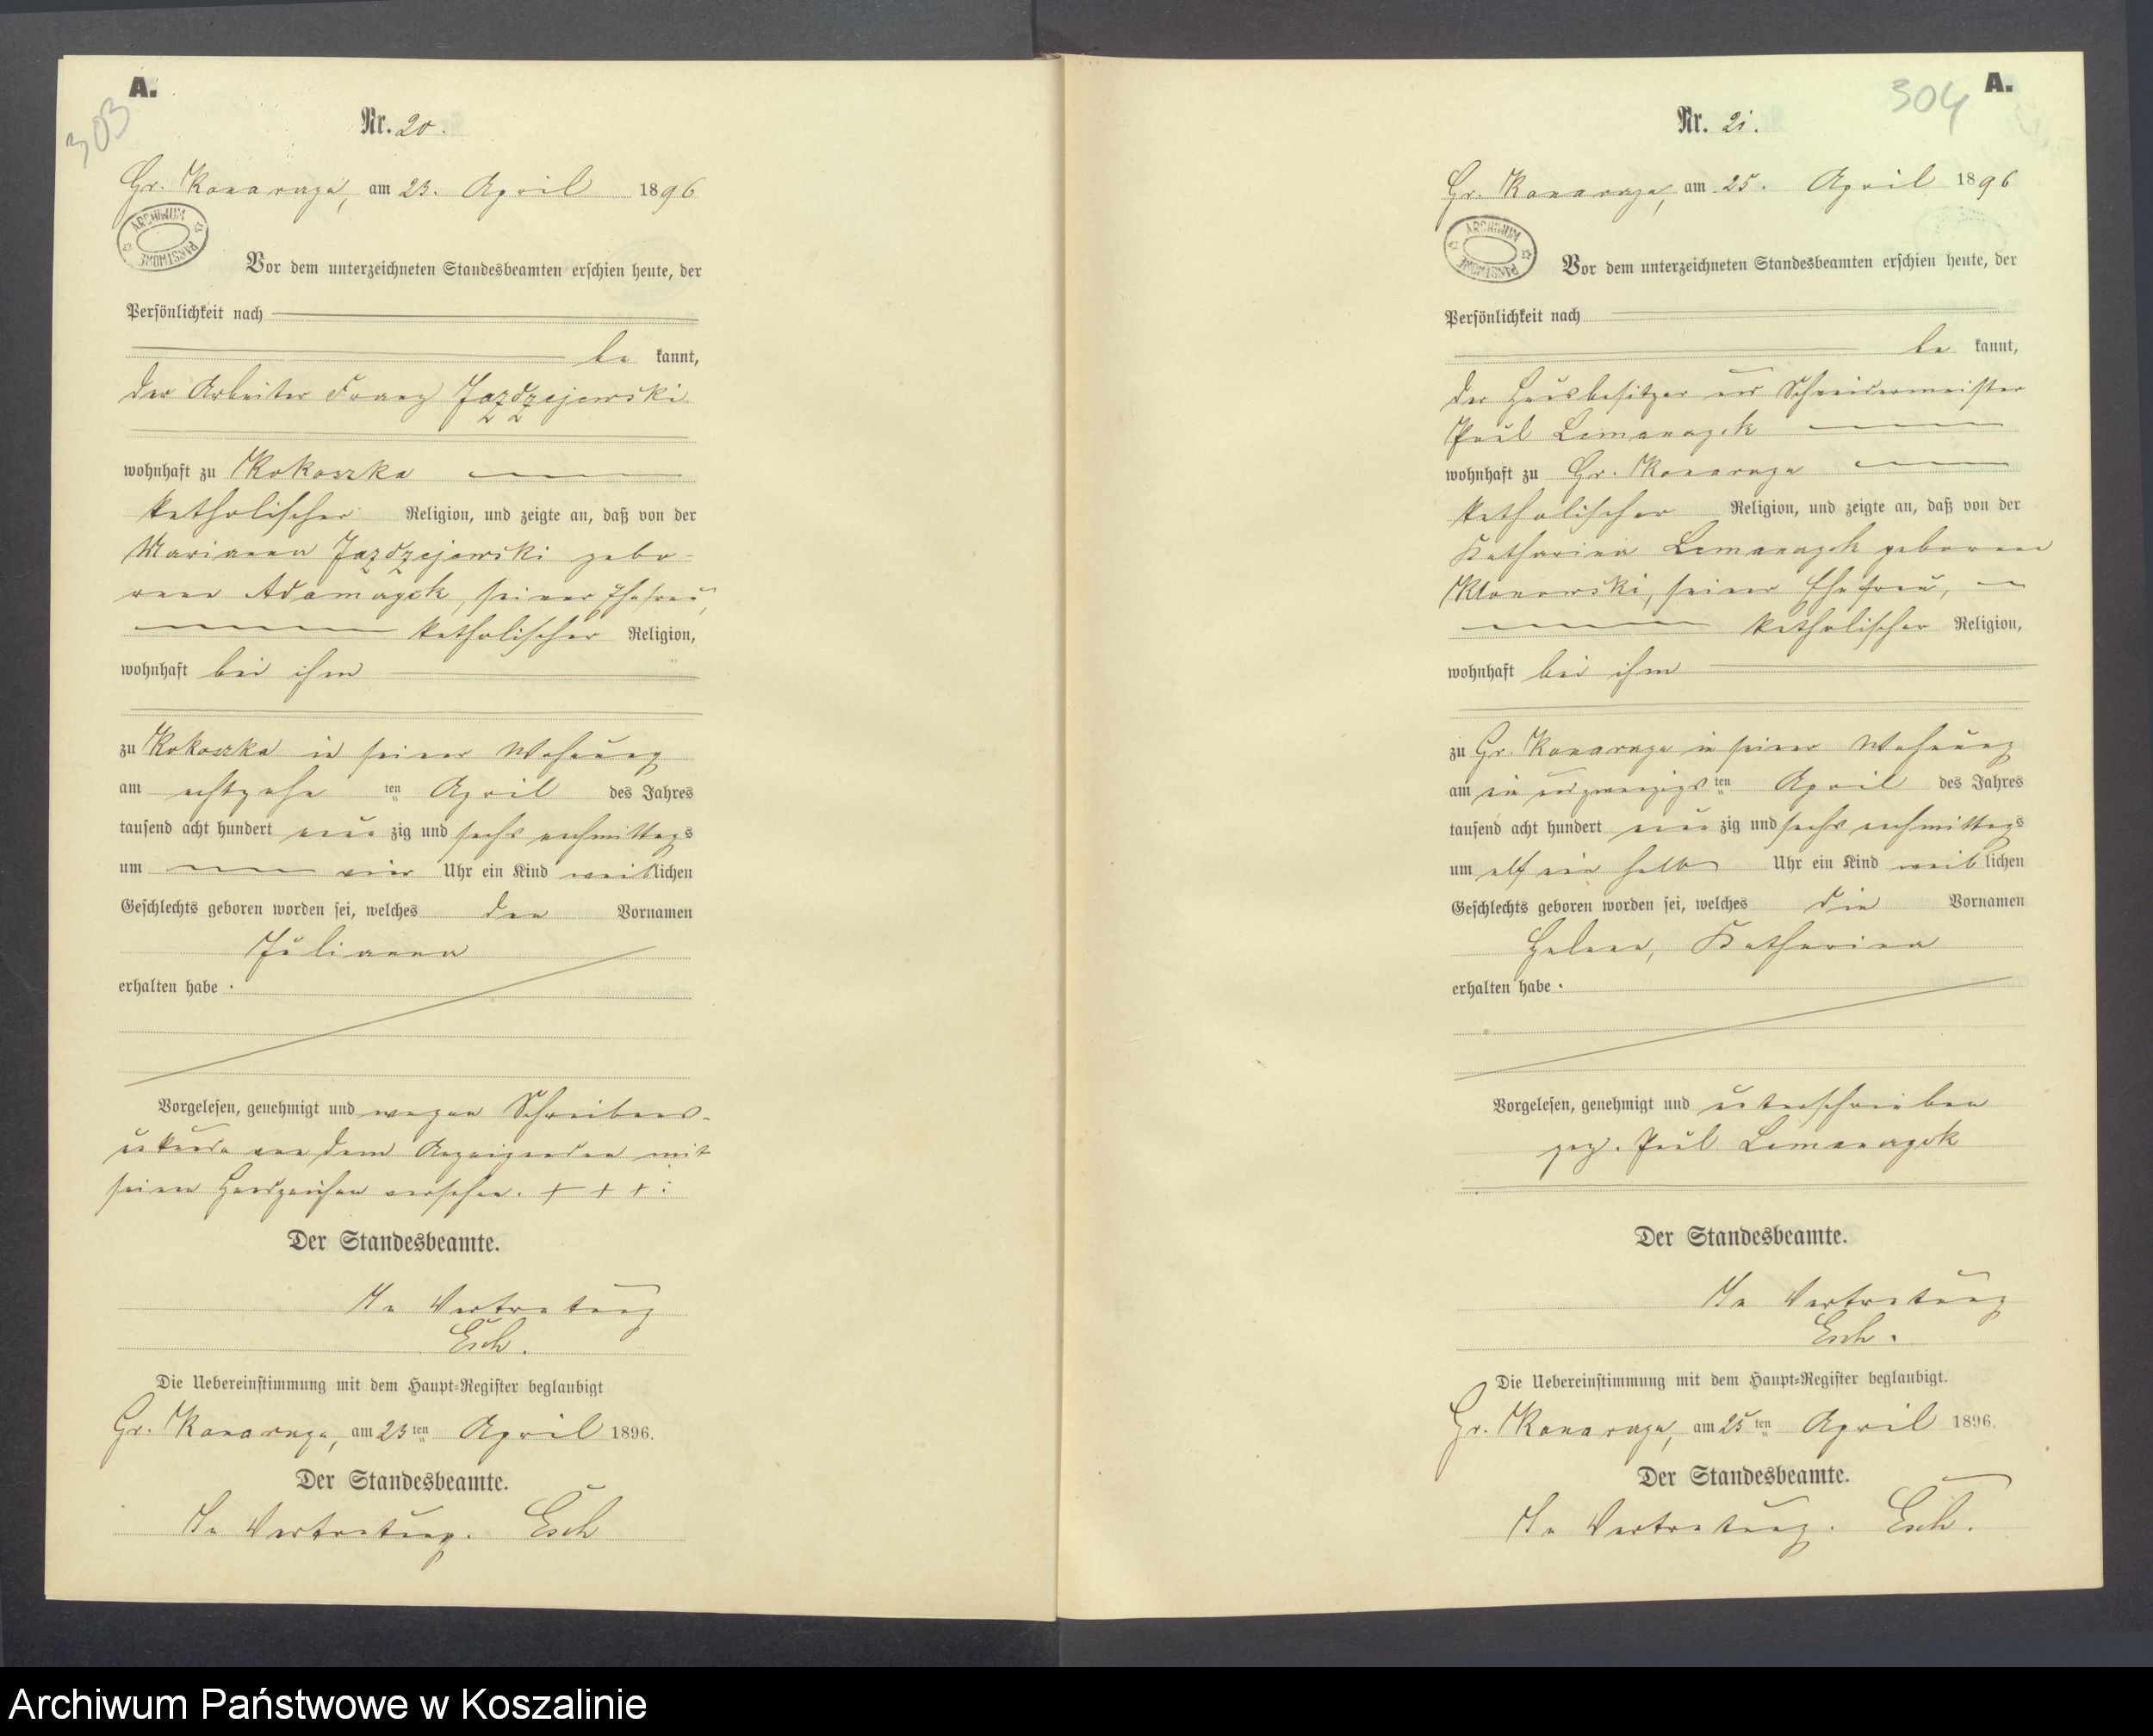 A.
303
Nr. 20.
Gr. Konarzyn, am 23. April 1896
ARCHIWUM PAŃSTWOWE
Vor dem unterzeichneten Standesbeamten erschien heute, der
Persönlichkeit nach
be kannt,
der Arbeiter Franz Jazdzejewski
wohnhaft zu Kokoszka
katholischer Religion, und zeigte an, daß von der
Marianna Jazdzejewski gebo-
rene Adamczyk, seiner Ehefrau,
katholischer Religion,
wohnhaft bei ihm
zu Kokoszka in seiner Wohnung
am achtzehn ten April des Jahres
tausend acht hundert neun zig und sechs nachmittags
um vier Uhr ein Kind weib lichen
Geschlechts geboren worden sei, welches den Vornamen
Julianna
erhalten habe.
Vorgelesen, genehmigt und wegen Schreibens-
unkunde von dem Anzeigenden mit
seinem Handzeichen versehen. + + +:
Der Standesbeamte.
In Vertretung
Esch.
Die Uebereinstimmung mit dem Haupt-Register beglaubigt
Gr. Konarzyn, am 23 ten April 1896.
Der Standesbeamte.
In Vertretung. Esch
A.
304
Nr. 21.
Gr. Konarzyn, am 25. April 1896
ARCHIWUM PAŃSTWOWE
Vor dem unterzeichneten Standesbeamten erschien heute, der
Persönlichkeit nach
be kannt,
der Hausbesitzer und Schneidermeister
Paul Lemanczyk
wohnhaft zu Gr. Konarzyn
katholischer Religion, und zeigte an, daß von der
Katharina Lemanczyk geborene
Klonowski, seiner Ehefrau,
katholischer Religion,
wohnhaft bei ihm
zu Gr. Konarzyn in seiner Wohnung
am ein und zwanzigs ten April des Jahres
tausend acht hundert neun zig und sechs nachmittags
um elf ein halb Uhr ein Kind weib lichen
Geschlechts geboren worden sei, welches die Vornamen
Helene, Katharina
erhalten habe.
Vorgelesen, genehmigt und unterschrieben
gez. Paul Lemanczyk
Der Standesbeamte.
In Vertretung
Esch.
Die Uebereinstimmung mit dem Haupt-Register beglaubigt.
Gr. Konarzyn, am 25 ten April 1896.
Der Standesbeamte.
In Vertretung. Esch.
Archiwum Państwowe w Koszalinie